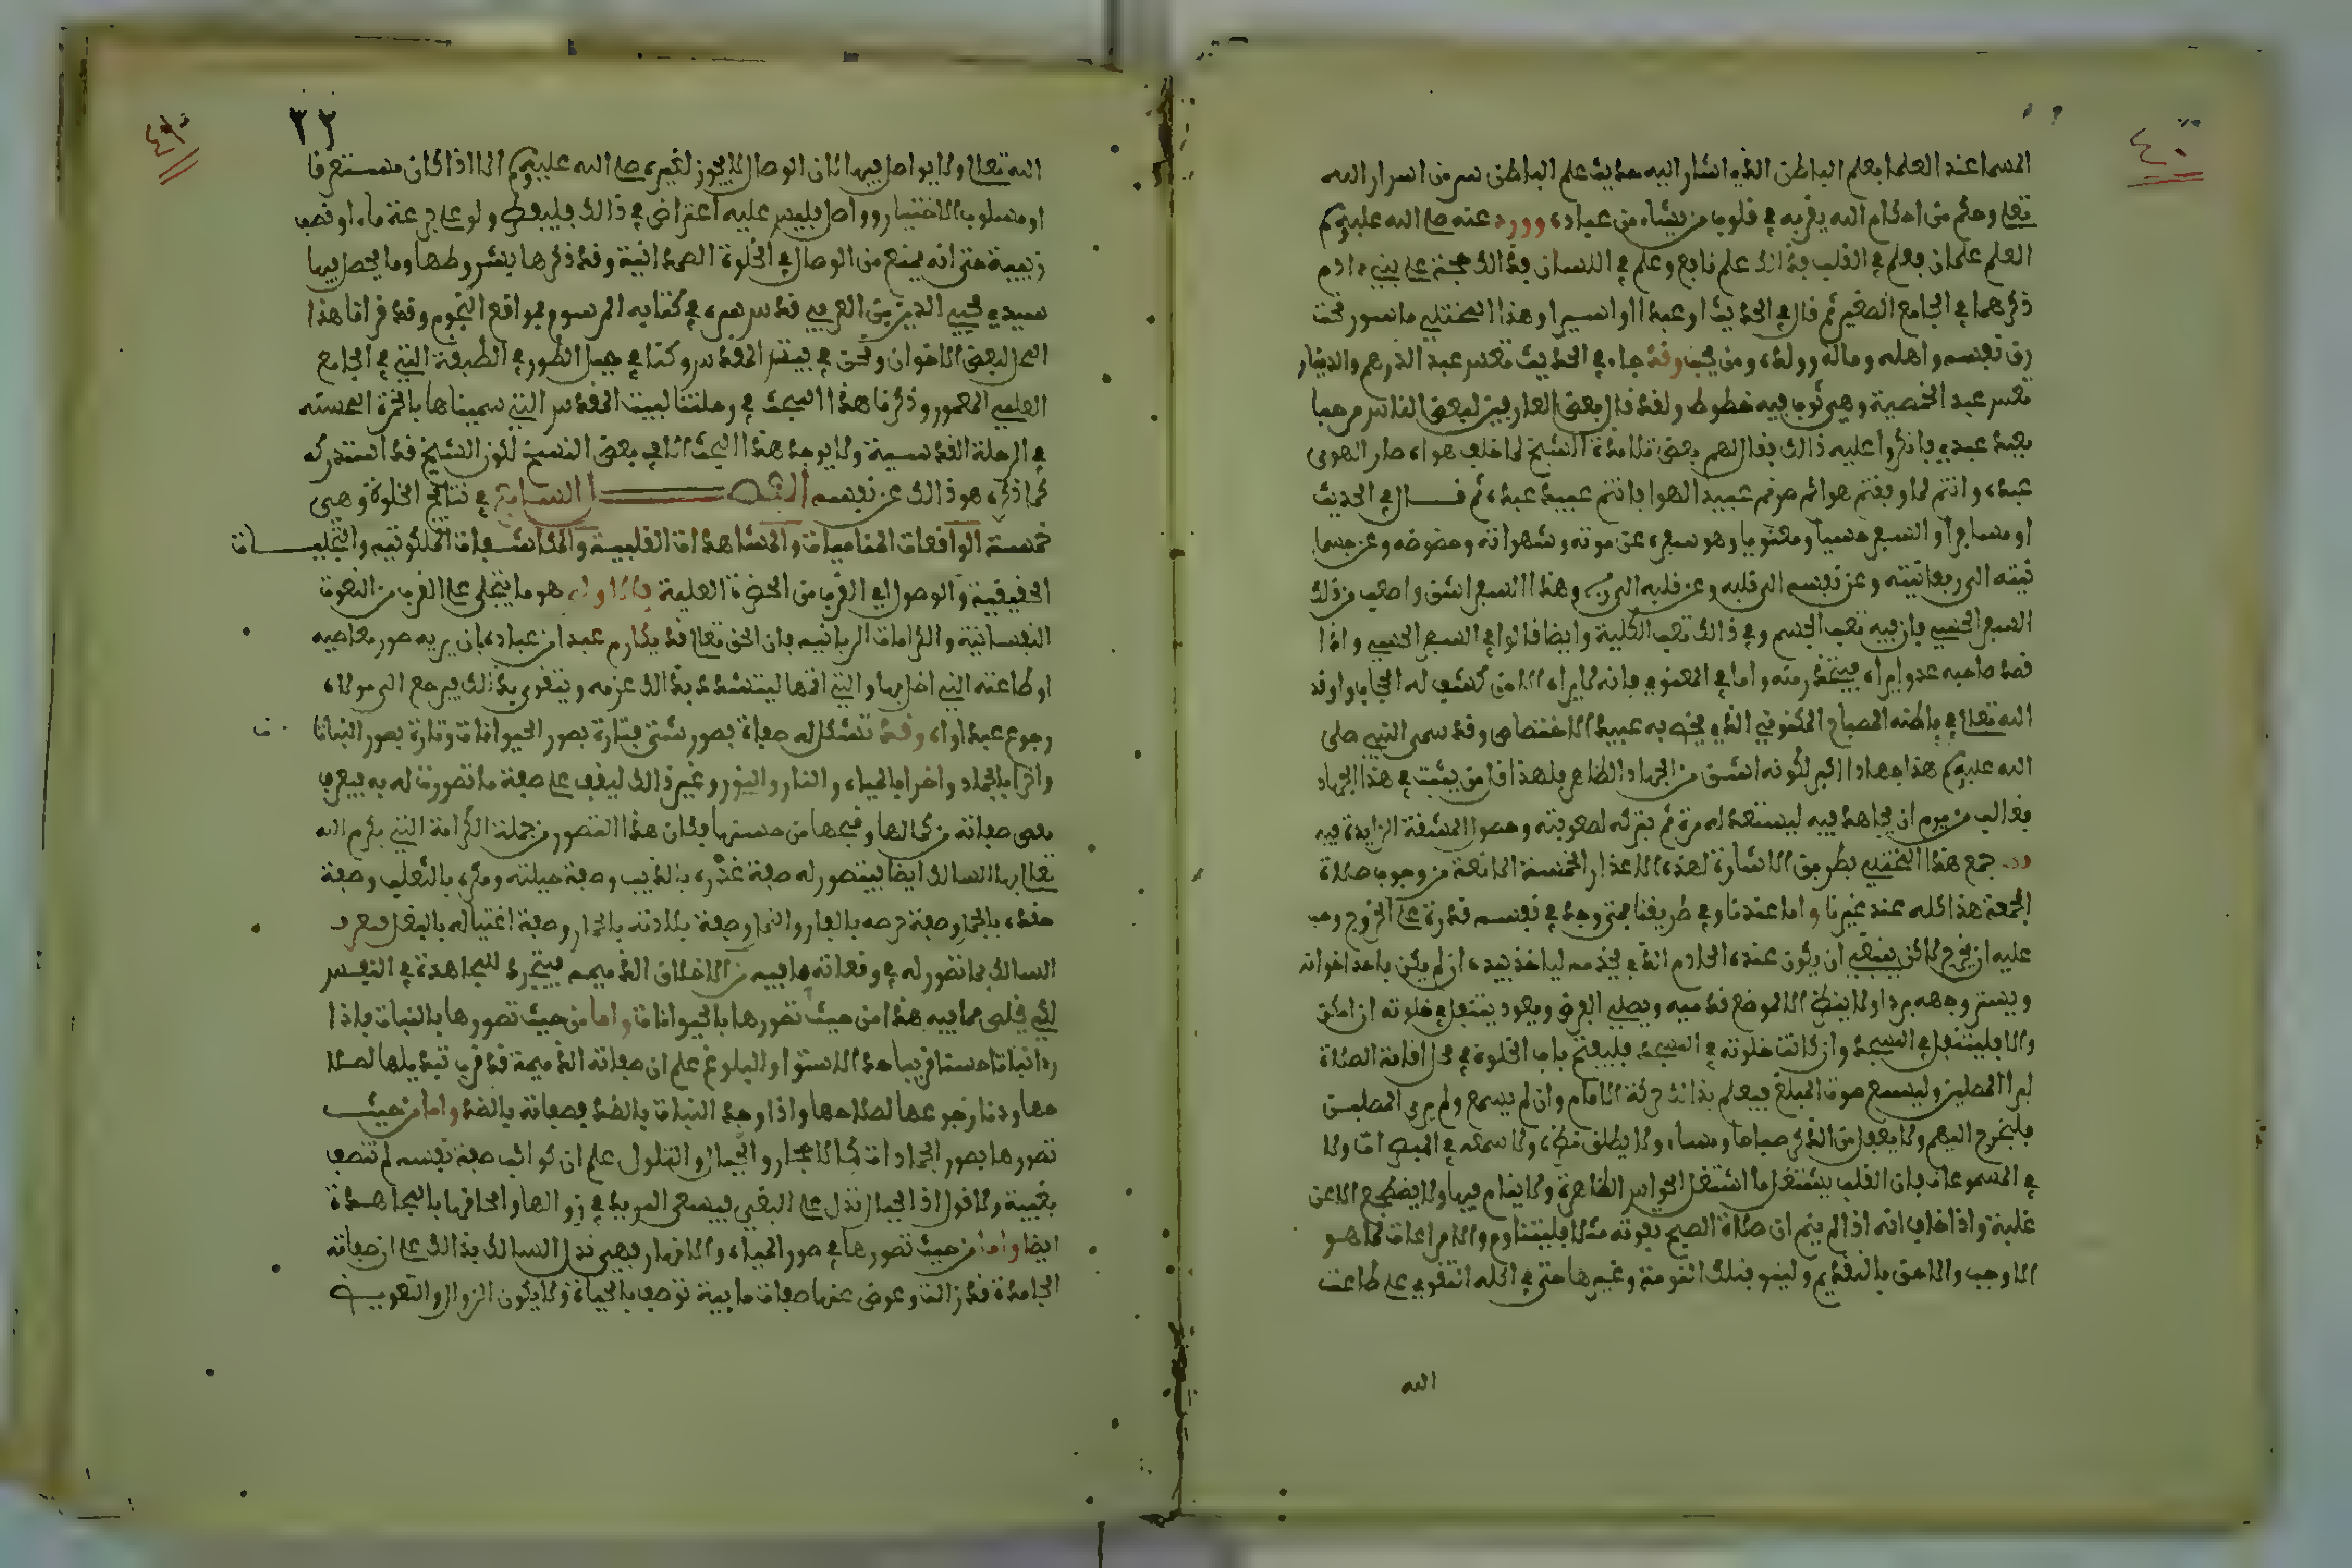 ٤٠
المسما عند العلما بعلم الباطن الذي اشار اليه حديث علم الباطن سر من اسرار الله
تعلى وحكم من احكام الله يقذفه في قلوب من يشاء من عباده وورد عنه صلى الله عليه وسلم
العلم علمان فعلم في القلب فذالك علم نافع وعلم في اللسان فذالك حجة على بني ءادم
ذكرهما في الجامع الصغير ثم قال في الحديث او عبدا او اسيرا وهذا المختلي ماسور تحت
رق نفسه واهله وماله وولده ومن يحب وقد جاء في الحديث تعس عبد الدرهم والدينار
تعس عبد الخمصية وهي ثوب فيه خطوط ولقد قال بعض العارفين لبعض الناس مرحبا
بعبد عبدي فانكروا عليه ذالك فقال لهم بعض تلامذة الشيخ لما خالف هواه صار الهوى
عبده وانتم لما وافقتم هواكم صرتم عبيد الهوا فانتم عبيد عبده ثم قال في الحديث
او مسافرا والسفر حسيا ومعنويا وهو سفره عن موته وشهواته وحضوضه وعن جسما
نيته الى روحانيته وعن نفسه الى قلبه وعن قلبه الى ربه وهذا السفر اشق واصعب من ذلك
السفر الحسي فان فيه تعب الجسم وفي ذالك تعب الكلية وايضا قالوا في السفر الحسي واذا
قصد صاحبه عدو يراه فيتحذر منه واما في المعنوي فانه لا يراه الا من كشف له الحجاب واوقد
الله تعالى في باطنه المصباح المكنون الذي يخص به عبيد الاختصاص وقد سمى النبي صلى
الله عليه وسلم هذا جهادا اكبر لكونه اشق من الجهاد الظاهر فلهذا قل من يثبت في هذا الجهاد
فغالب من يروم ان يجاهد فيه ليستعد له مرة ثم يتركه لصعوبته وحصول المشقة الزايدة فيه
جمع هذا المختلي بطريق الاشارة لهذه الاعذار الخمسة المانعة من وجوب صلاة
الجمعة هذا كله عند غيرنا واما عندنا وفي طريقنا فمتى وجد في نفسه قدرة على الخروج وجب
عليه ان يخرج لاكن ينبغي ان يكون عنده الخادم الذي يخدمه لياخذ بيده ان لم يكن فاحد اخوانه
ويستر وجهه بردا ولا ينظر الا لموضع قدميه ويصلي الفرض ويعود يتنفل في خلوته ان امكن
والا فليتنفل في المسجد وان كانت خلوته في المسجد فليفتح باب الخلوة في حال اقامة الصلاة
ليرا المصلين وليسمع صوت المبلغ فيعلم بذالك حركة الامام وان لم يسمع ولم يرى المصلين
فليخرج اليهم ولا يغفل من الذكر صباحا ومساء ولا يطلق نظره ولا سمعه في المبصرات ولا
في المسموعات فان القلب يشتغل ما اشتغل الحواس الظاهرة ولا ينام فيها ولا يضطجع الا عن
غلبة واذا خاف انه اذا لم ينم ان صلاة الصبح تفوته مثلا فليتناوم والامراعات لما هو
الاوجب والاحق بالتقديم ولينو بتلك النومة وغيرها حتى في اكله التقوي على طاعت
الله
٤١
٣٣
الله تعالى ولا يواصل فيها لان الوصال لا يجوز لغيره صلى الله عليه وسلم الا اذا كان مستغرقا
او مسلوب الاختيار وواصل فليس عليه اعتراض في ذالك فليفطر ولو على جرعة ماء او نصف
زبيبة حتى انه يمنع من الوصال في الخلوة الصمدانية وقد ذكرها بشروطها وما يحصل فيها
سيدي محيي الدين بن العربي قدس سره في كتابه المرسوم بمواقع النجوم وقد قراناهذا
المحل لبعض الاخوان ونحن في بيت المقدس وكنا في جبل الطور في الطبقة التي في الجامع
العلمي المعمور وذكرنا هذا المبحث في رحلتنا لبيت المقدس التي سميناها بالخمرة الحسية
في الرحلة القدسية ولا يوجد هذا البحث الا في بعض النسخ لكون الشيخ قد استدركه
كما ذكره هو ذالك عن نفسه الفصل السابع في نتايج الخلوة وهي
خمسة الواقعات المقاميات والمشاهدات القلبية والمكاشفات الملكوتيه والتجليات
الحقيقية والوصول الى القرب من الحضرة العلية فالاول هو ما يتجلى على القرب من النعوت
النفسانية والكرامات الربانيه فان الحق تعالى قد يكارم عبدا من عباده بان يريه صور معاصيه
او طاعته التي اخل بها والتي اتمها ليتشدد بذالك عزمه ويتقوى بذالك فيرجع الى مولاه
رجوع عبد اواه وقد تتشكل له صفاة بصور شتى فتارة بصور الحيوانات وتارة بصور النباتا
واخرا بالجماد واخرا بالمياه والنار والنور وغير ذالك ليقف على صفة ما تصورت له به فيعرف
نقص صفاته من كمالها وقبحها من حسنها فكان هذا التصور من جملة الكرامة التي يكرم الله
تعالى بها السالك ايضا فيتصور له صفة غدره بالذيب وصفة حيلته ومكره بالثعلب وصفة
حقده بالجمل وصفة حرصه بالفار والنمل وصفة بلادته بالحمار وصفة اغتياله بالبغل فيعرف
السالك بما تصور له في وقعاته ما فيه من الاخلاق الذميمه فيتجرد للمجاهدة في النفس
لكي تخلص مما فيه هذا من حيث تصورها بالحيوانات واما من حيث تصورها بالنبات فاذا
رءا نباتا حسنا قريبا حد الاستوا والبلوغ علم ان صفاته الذميمة قد قرب تبديلها لصلا
حها ودنا رجوعها لصلاحها واذا وجد النبات بالضد فصفاته بالضد واما من حيث
تصورها بصور الجمادات كالاحجار والجبال والتلول علم ان كواثف صفة نفسه لم تتصف
بغيبة ولا افول اذ الجبال تدل على البقى فيسعى المريد في زوالها والحاقها بالمجاهدة
ايضا واما من حيث تصورها في صور المياه والانهار فهي تدل السالك بذالك على ان صفاته
الجامدة قد زالت وعوض عنها صفات مايية توصف بالحياة ولا يكون الزوال والتعويض